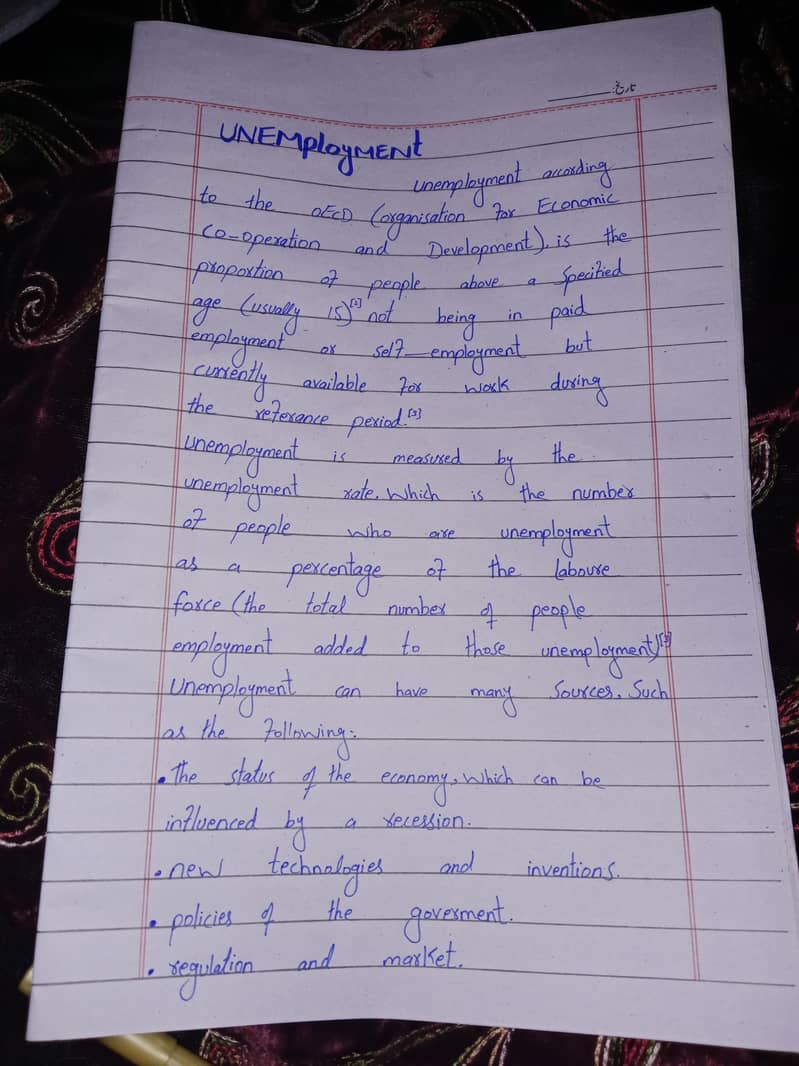 _____ تاریخ:
UNEMployMENT
unemployment according
to the OECD (organisation for Economic
co-operation and Development), is the
proportion of people above a specified
age (usually 15)[2] not being in paid
employment or self-employment but
currently available for work during
the referance period.[3]
unemployment is measured by the
unemployment rate, which is the number
of people who are unemployment
as a percentage of the laboure
force (the total number of people
employment added to those unemployment)[3]
Unemployment can have many sources, such
as the following:
• The status of the economy, which can be
influenced by a recession.
• new technologies and inventions.
• policies of the goverment.
• regulation and market.